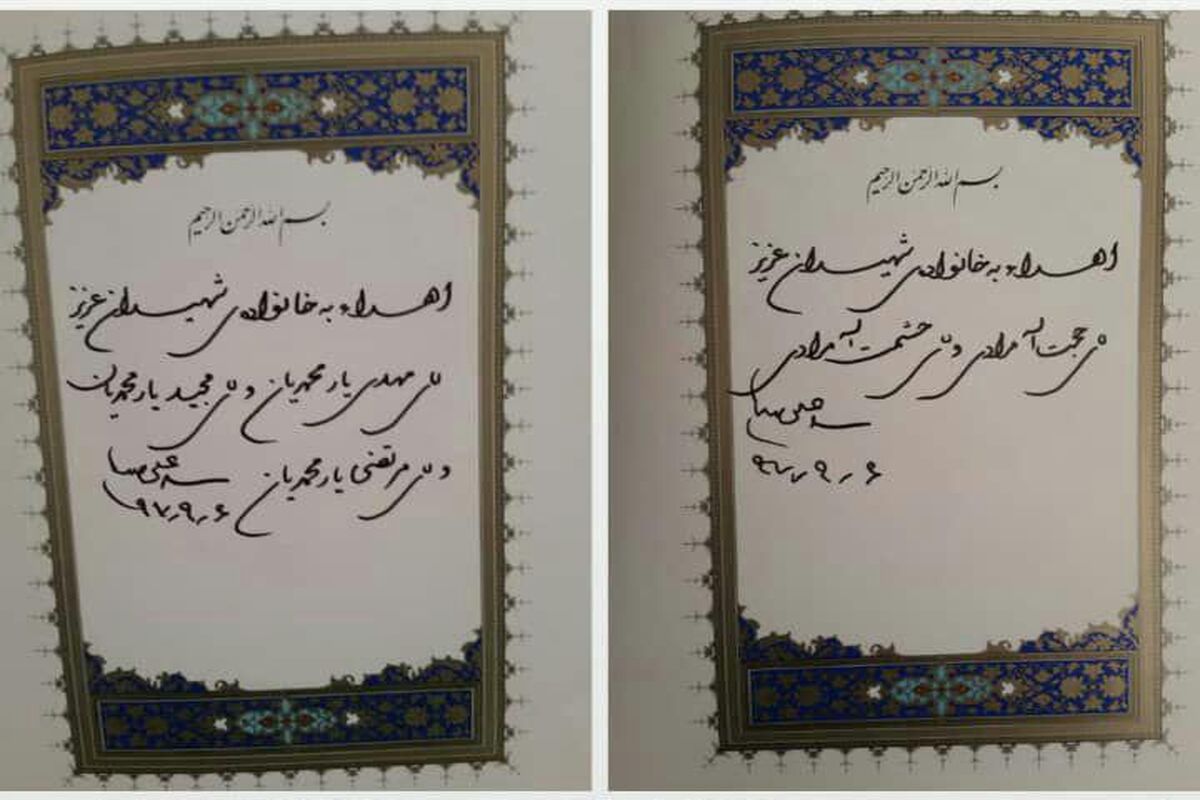 بسم الله الرحمن الرحیم
اهداء به خانواده‌ی شهیدان عزیز
مهدی یارمحمدیان و مجید یارمحمدیان
و مرتضی یارمحمدیان
۹۷٫۹٫۶
بسم الله الرحمن الرحیم
اهداء به خانواده‌ی شهیدان عزیز
حجت اله مرادی و حشمت اله مرادی
۹۷٫۹٫۶